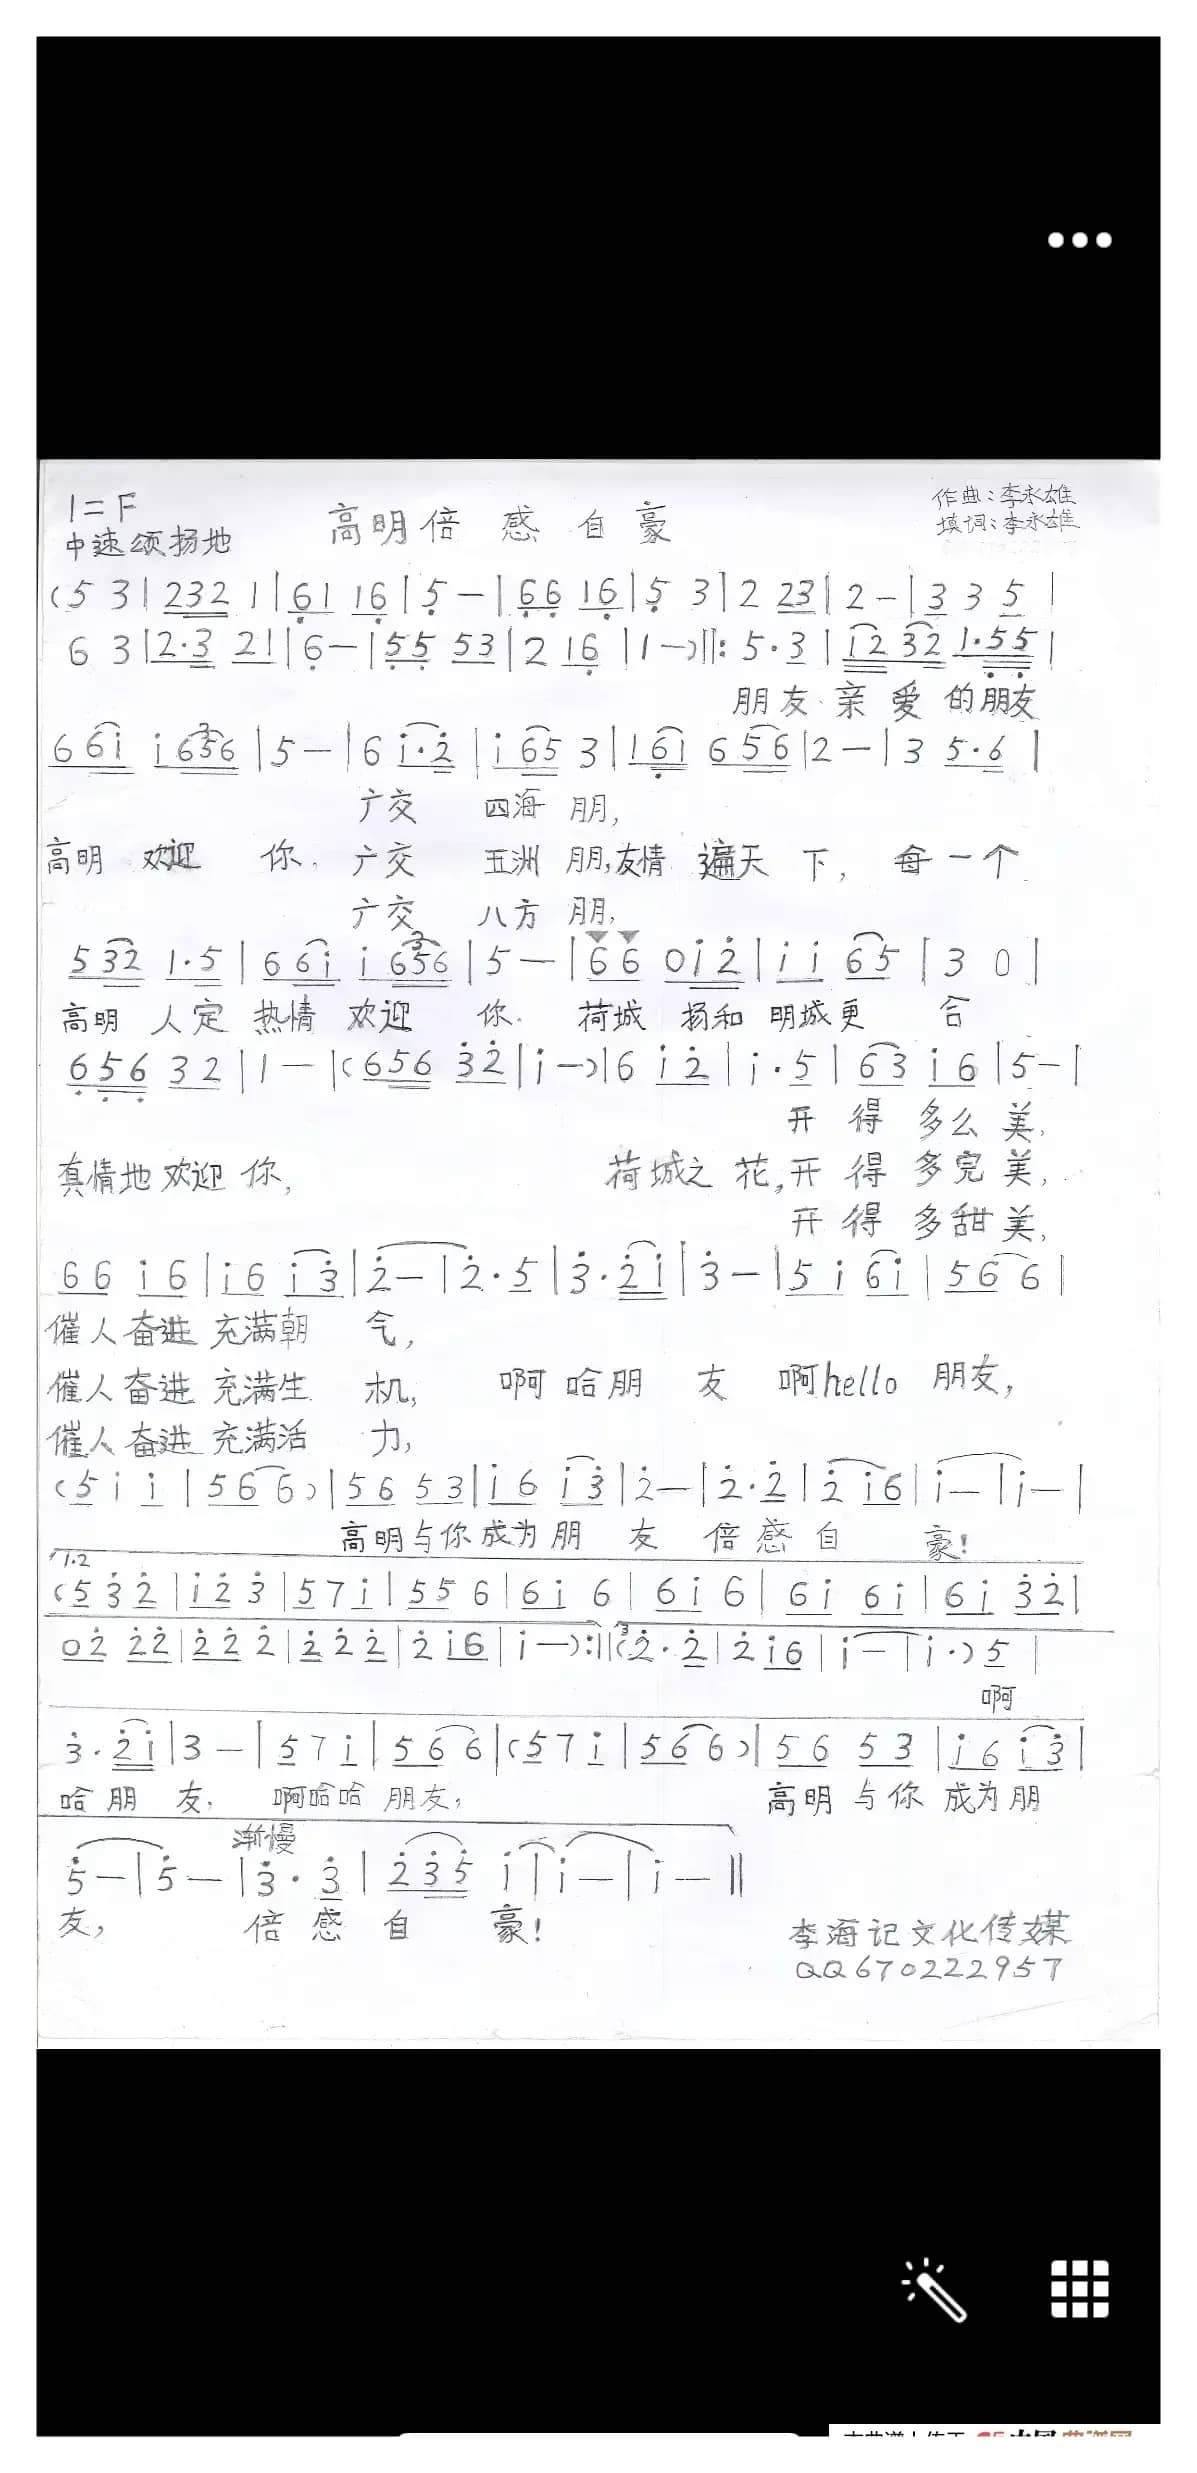 1=F
高明倍感自豪
作曲：李永雄
中速颂扬地
填词：李永雄
(5 3|232 1|61 16|5-|66 16|5 3|2 23|2-|3 3 5|
6 3|2·3 21|6-|55 53|2 16|1-)||:5·3|12 32 1·55|
朋友亲爱的朋友
6 61 1656|5-|6 1·2|1 65 3|1 61 6 56|2-|3 5·6|
广交 四海 朋，
高明 欢迎 你. 广交 五洲 朋,友情 遍天 下，每一个
广交 八方 朋，
5 32 1·5|6 61 1 656|5-|66 012|11 65|3 0|
高明 人定 热情 欢迎 你. 荷城 扬和 明城更 合
656 32|1-|(656 32|1-)|6 12|1·5|63 16|5-|
开 得 多么 美，
真情地欢迎你， 荷城之 花，开 得 多完 美，
开 得 多甜 美，
66 16|16 13|2-|2·5|3·21|3-|5 1 61|56 6|
催人奋进 充满朝 气，
催人奋进 充满生 机， 啊 哈朋 友 啊hello 朋友，
催人奋进 充满活 力，
(5 1 1|56 6)|56 53|16 13|2-|2·2|2 16|1-|1-|
高明与你成为朋 友 倍感自 豪！
1.2
(5 3 2|1 2 3|5 7 1|55 6|61 6|61 6|61 61|61 32|
02 22|22 2|2 2 2|2 16|1-):||3(2·2|2 16|1-|1·)5|
啊
3·21|3-|5 7 1|56 6|(5 7 1|56 6)|56 53|16 13|
哈朋 友， 啊哈哈 朋友， 高明 与你 成为朋
渐慢
5-|5-|3·3|2 35 1|1-|1-||
友， 倍感自 豪！
李海记文化传媒
QQ670222957